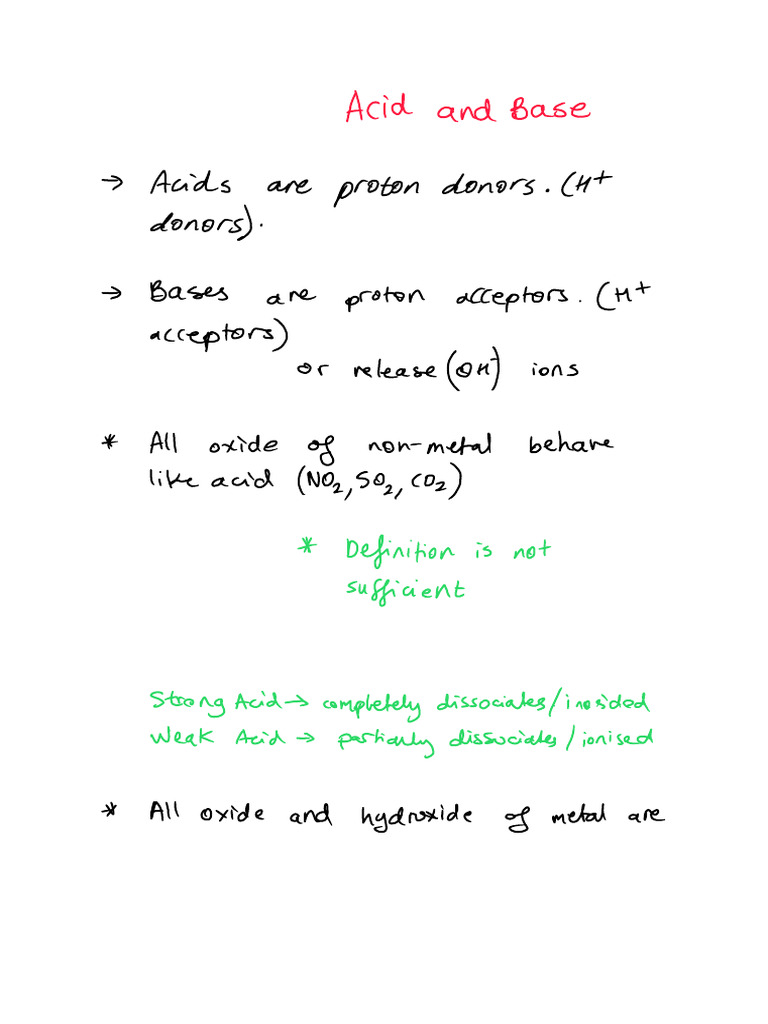 Acid and Base
→ Acids are proton donors. (H+
donors).
→ Bases are proton acceptors. (H+
acceptors)
or release (OH⁻) ions
* All oxide of non-metal behave
like acid (NO₂, SO₂, CO₂)
* Definition is not
sufficient
Strong Acid → completely dissociates/inosided
Weak Acid → partially dissociates/ionised
* All oxide and hydroxide of metal are